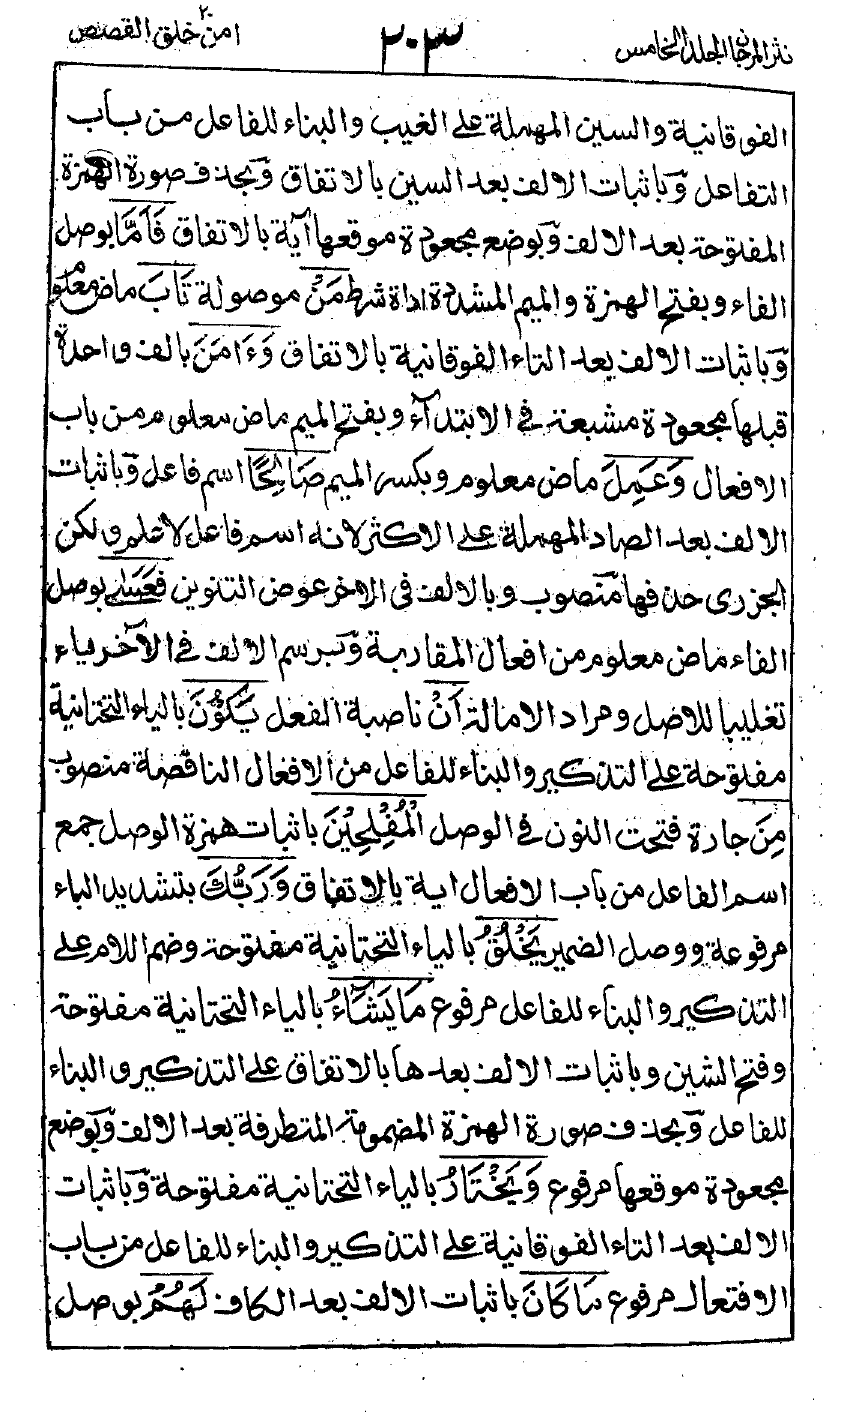 نثر المرجان الجلد الخامس
٢٠٣
امن خلق ٢٠ القصص
الفوقانية والسين المهملة على الغيب والبناء للفاعل من باب
التفاعل وباثبات الالف بعد السين بالاتفاق وبحذف صورة الهمزة
المفتوحة بعد الالف وبوضع مجعودة موقعها آية بالاتفاق فَاَمَّا بوصل
الفاء وبفتح الهمزة والميم المشددة اداة شرط مَنْ موصولة تَابَ ماض معلوم
وباثبات الالف بعد التاء الفوقانية بالاتفاق وَءَامَنَ بالف واحدة
قبلها مجعودة مشبعة في الابتدآء وبفتح الميم ماض معلوم من باب
الافعال وَعَمِلَ ماض معلوم وبكسر الميم صَالِحًا اسم فاعل وباثبات
الالف بعد الصاد المهملة على الاكثر لانه اسم فاعل لا علم ولكن
الجزرى حذفها منصوب وبالالف فى الاخر عوض التنوين فَعَسٰى بوصل
الفاء ماض معلوم من افعال المقاربة وبرسم الالف في الآخر ياء
تغليبا للاصل ومراد الامالة اَنْ ناصبة الفعل يَكُوْنَ بالياء التحتانية
مفتوحة على التذكير والبناء للفاعل من الافعال الناقصة منصوب
مِنَ جادة فتحت النون في الوصل الْمُفْلِحِيْنَ باثبات همزة الوصل جمع
اسم الفاعل من باب الافعال اية بالاتفاق وَرَبُّكَ بتشديد الباء
مرفوعة ووصل الضمير يَخْلُقُ بالياء التحتانية مفتوحة وضم اللام على
التذكير والبناء للفاعل مرفوع مَا يَشَآءُ بالياء التحتانية مفتوحة
وفتح الشين وباثبات الالف بعدها بالاتفاق على التذكير والبناء
للفاعل وبحذف صورة الهمزة المضمومة المتطرفة بعد الالف وبوضع
مجعودة موقعها مرفوع وَيَخْتَارُ بالياء التحتانية مفتوحة وباثبات
الالف بعد التاء الفوقانية على التذكير والبناء للفاعل من باب
الافتعال مرفوع مَا كَانَ باثبات الالف بعد الكاف لَهُمُ بوصل